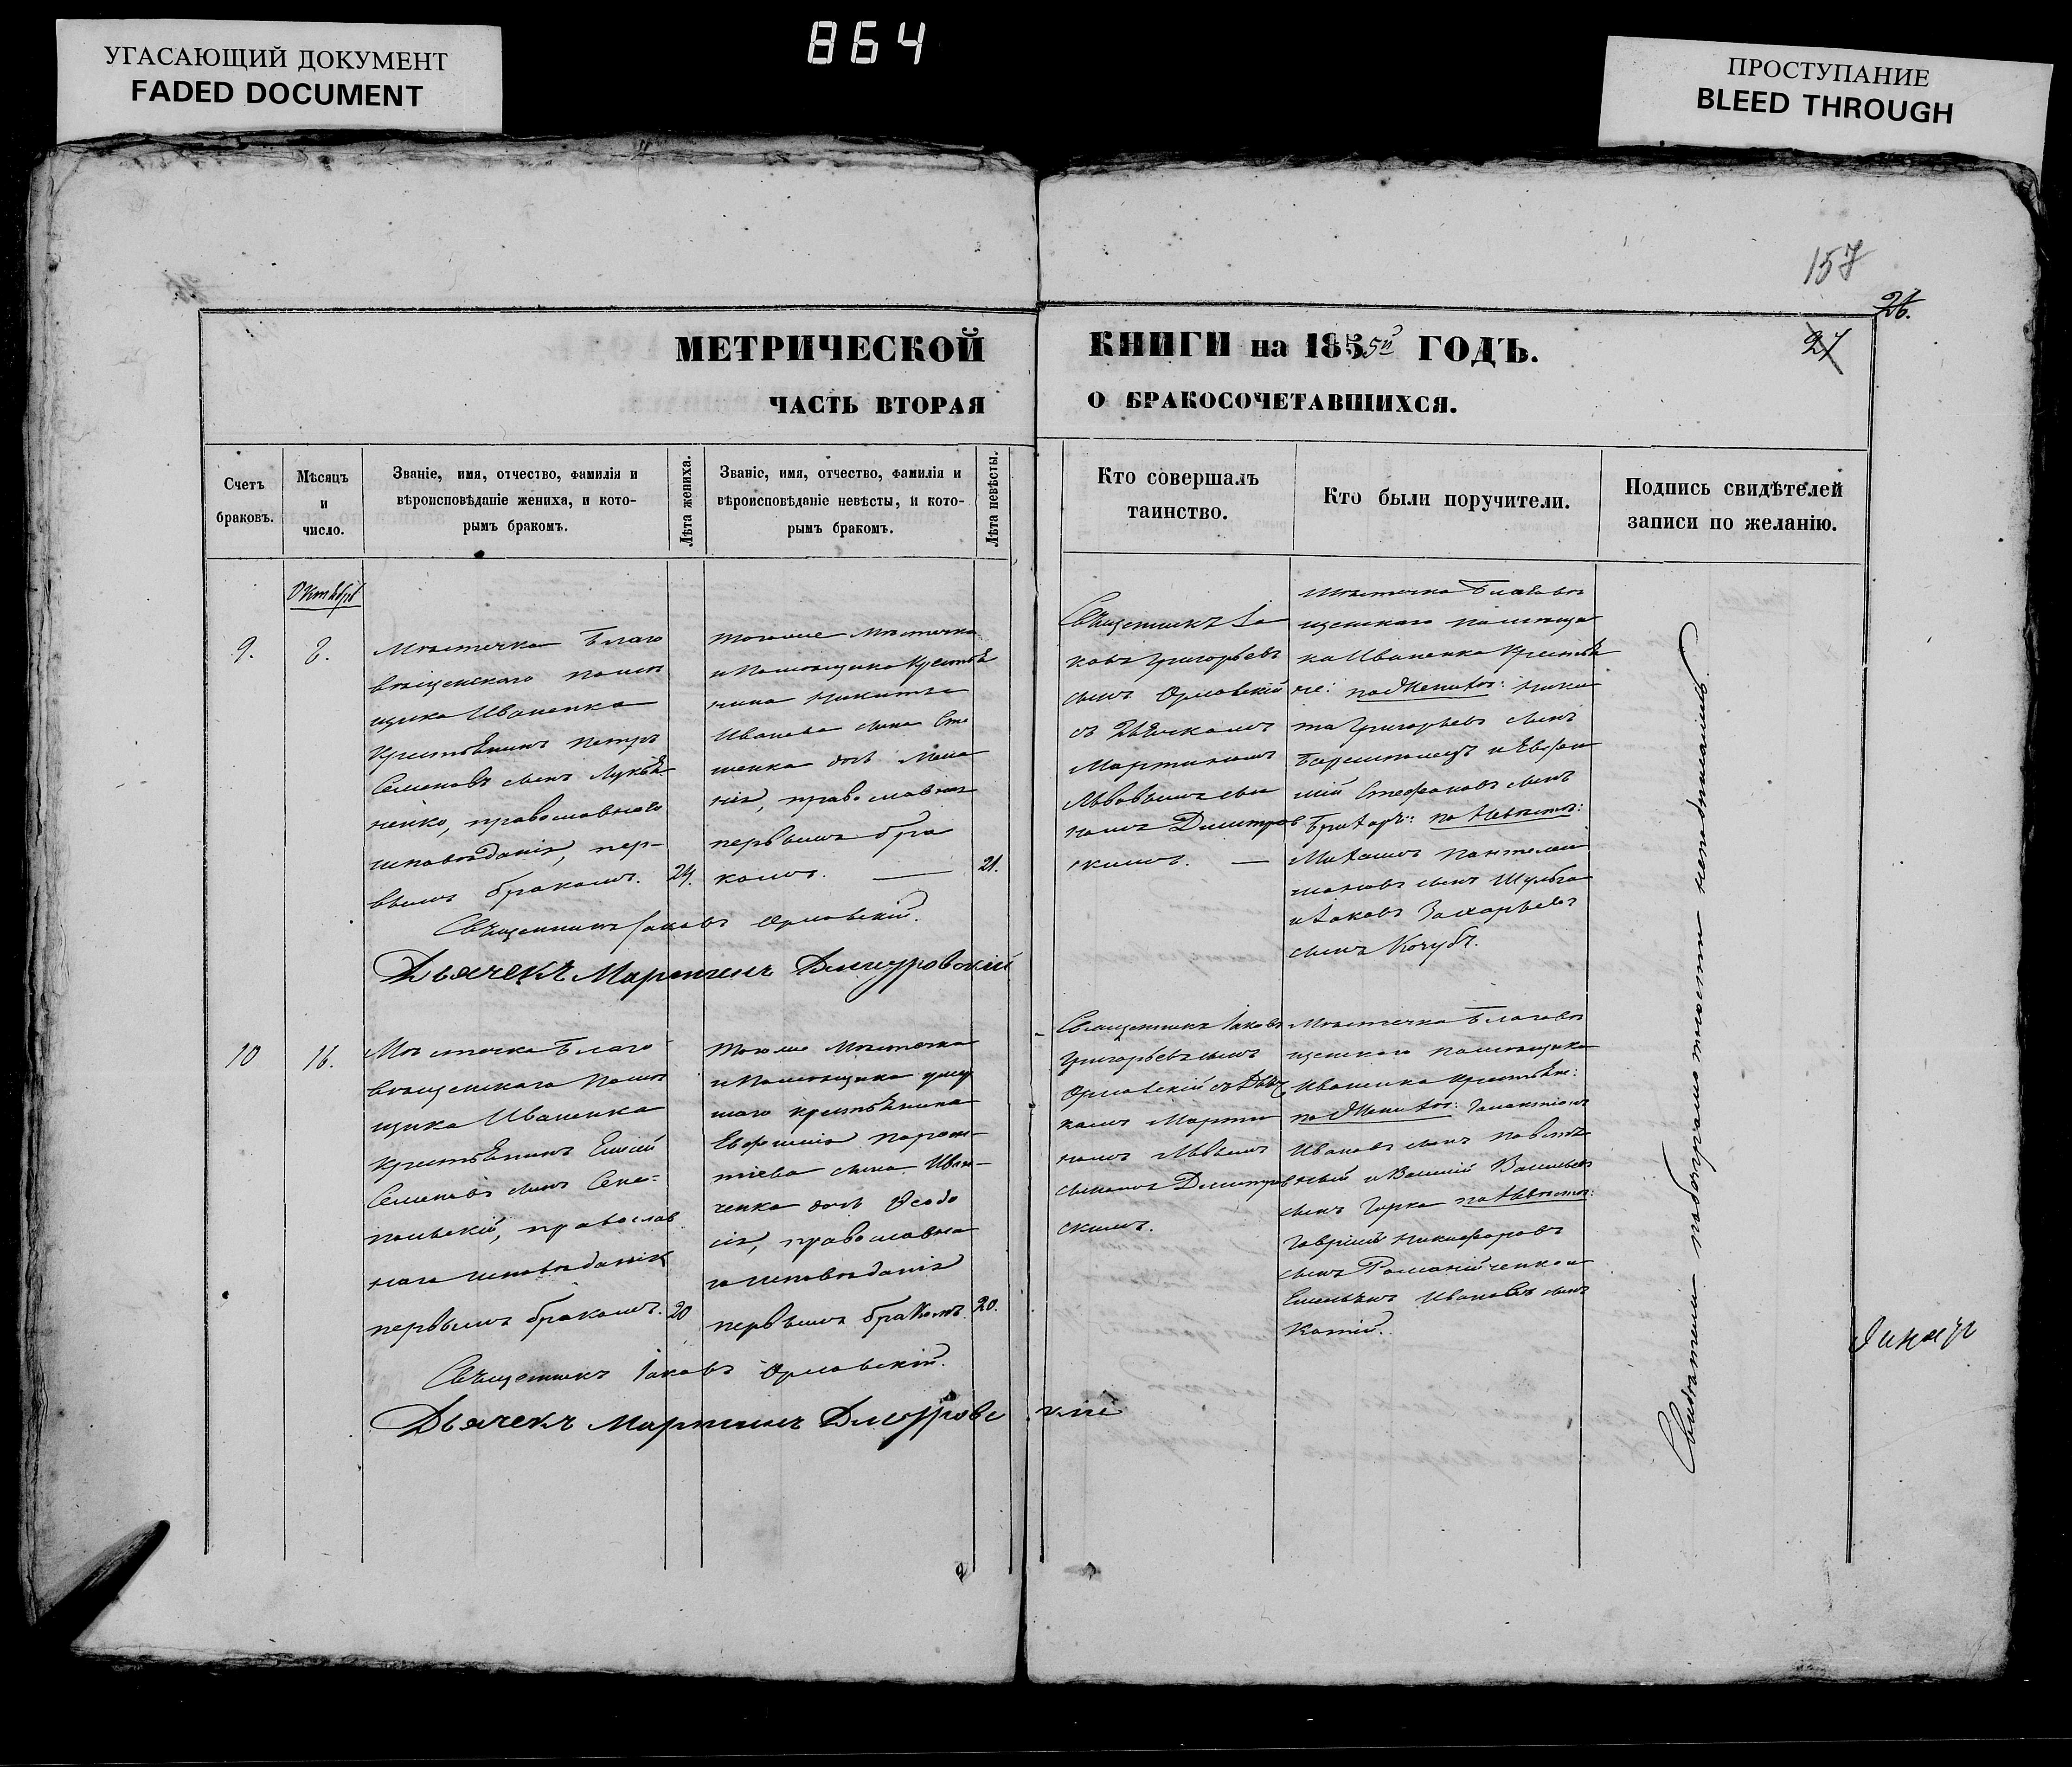 УГАСАЮЩИЙ ДОКУМЕНТ
FADED DOCUMENT
864
ПРОСТУПАНИЕ
BLEED THROUGH
157
26.
27
МЕТРИЧЕСКОЙ
ЧАСТЬ ВТОРАЯ
КНИГИ на 1855й ГОДЪ.
О БРАКОСОЧЕТАВШИХСЯ.
Счетъ
браковъ.
Мѣсяцъ
и
число.
Званіе, имя, отчество, фамилія и
вѣроисповѣданіе жениха, и кото-
рымъ бракомъ.
Лѣта жениха.
Званіе, имя, отчество, фамилія и
вѣроисповѣданіе невѣсты, и кото-
рымъ бракомъ.
Лѣта невѣсты.
Кто совершалъ
таинство.
Кто были поручители.
Подпись свидѣтелей
записи по желанію.
Октября
9.
8.
Мѣстечка Благо
вѣщенскаго помѣ
щика Иваненка
Крестьянинъ Петръ
Семеновъ сынъ Лукья
ненко, православнаго
исповѣданія, пер-
вымъ бракомъ.
24.
тогоже Мѣстечка
и Помѣщика Крестья
нина Никиты
Иванова сына
дочь
православная
первымъ бра
комъ.
21.
Священникъ Іа
ковъ Григорьевъ
сынъ Орловскій
съ Дьячкомъ
Мартиномъ
Львовымъ сы
номъ Дмитров
скимъ.
Мѣстечка Благовѣ
щенскаго помѣщи
ка Иваненка Крестья
не: по Женихѣ: Ники
та Григорьевъ сынъ
и Евфи
мій Стефановъ сынъ
по Невѣстѣ:
Пантелей
моновъ сынъ Шульга
и Іаковъ Захарьевъ
сынъ Кочубъ.
Священникъ Іаковъ Орловскій.
Дьячекъ Мартинъ Дмитровскій
10
16.
Мѣстечка Благо
вѣщенскаго помѣ
щика Иваненка
крестьянинъ
Семеновъ сынъ
православ
наго исповѣданія
первымъ бракомъ.
20
тогоже Мѣстечка
и Помѣщика умер
шаго крестьянина
Евфимія
сына Иван-
ченка дочь Ѳеодо
сія, православна
го исповѣданія
первымъ бракомъ.
20.
Священникъ Іаковъ
Григорьевъ сынъ
Орловскій съ Дьяч
комъ Марти
номъ Львовымъ
сыномъ Дмитров
скимъ.
Мѣстечка Благовѣ
щенскаго помѣщика
Иваненка Крестьяне:
по Женихѣ: Галактіонъ
Ивановъ сынъ
и Василій Васильевъ
сынъ Горка по Невѣстѣ:
Гавріилъ Никифоровъ
сынъ Романійченко и
Емельянъ Ивановъ сынъ
Священникъ Іаковъ Орловскій.
Дьячекъ Мартинъ Дмитровс
кій
Свидѣтели по безграмотности неподписались.